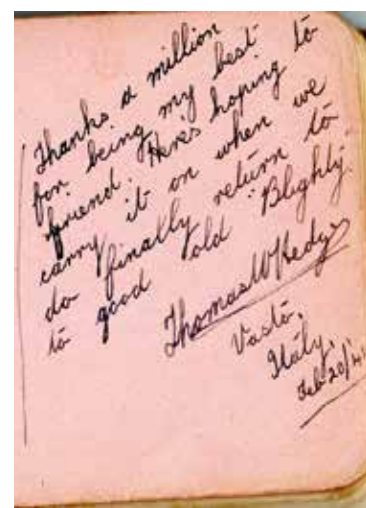 Thanks a million
for being my best
friend. Here's hoping to
carry it on when we
do finally return to
to good old "Blighty."
Thomas W Kedys
Vasto,
Italy,
Feb 20/44